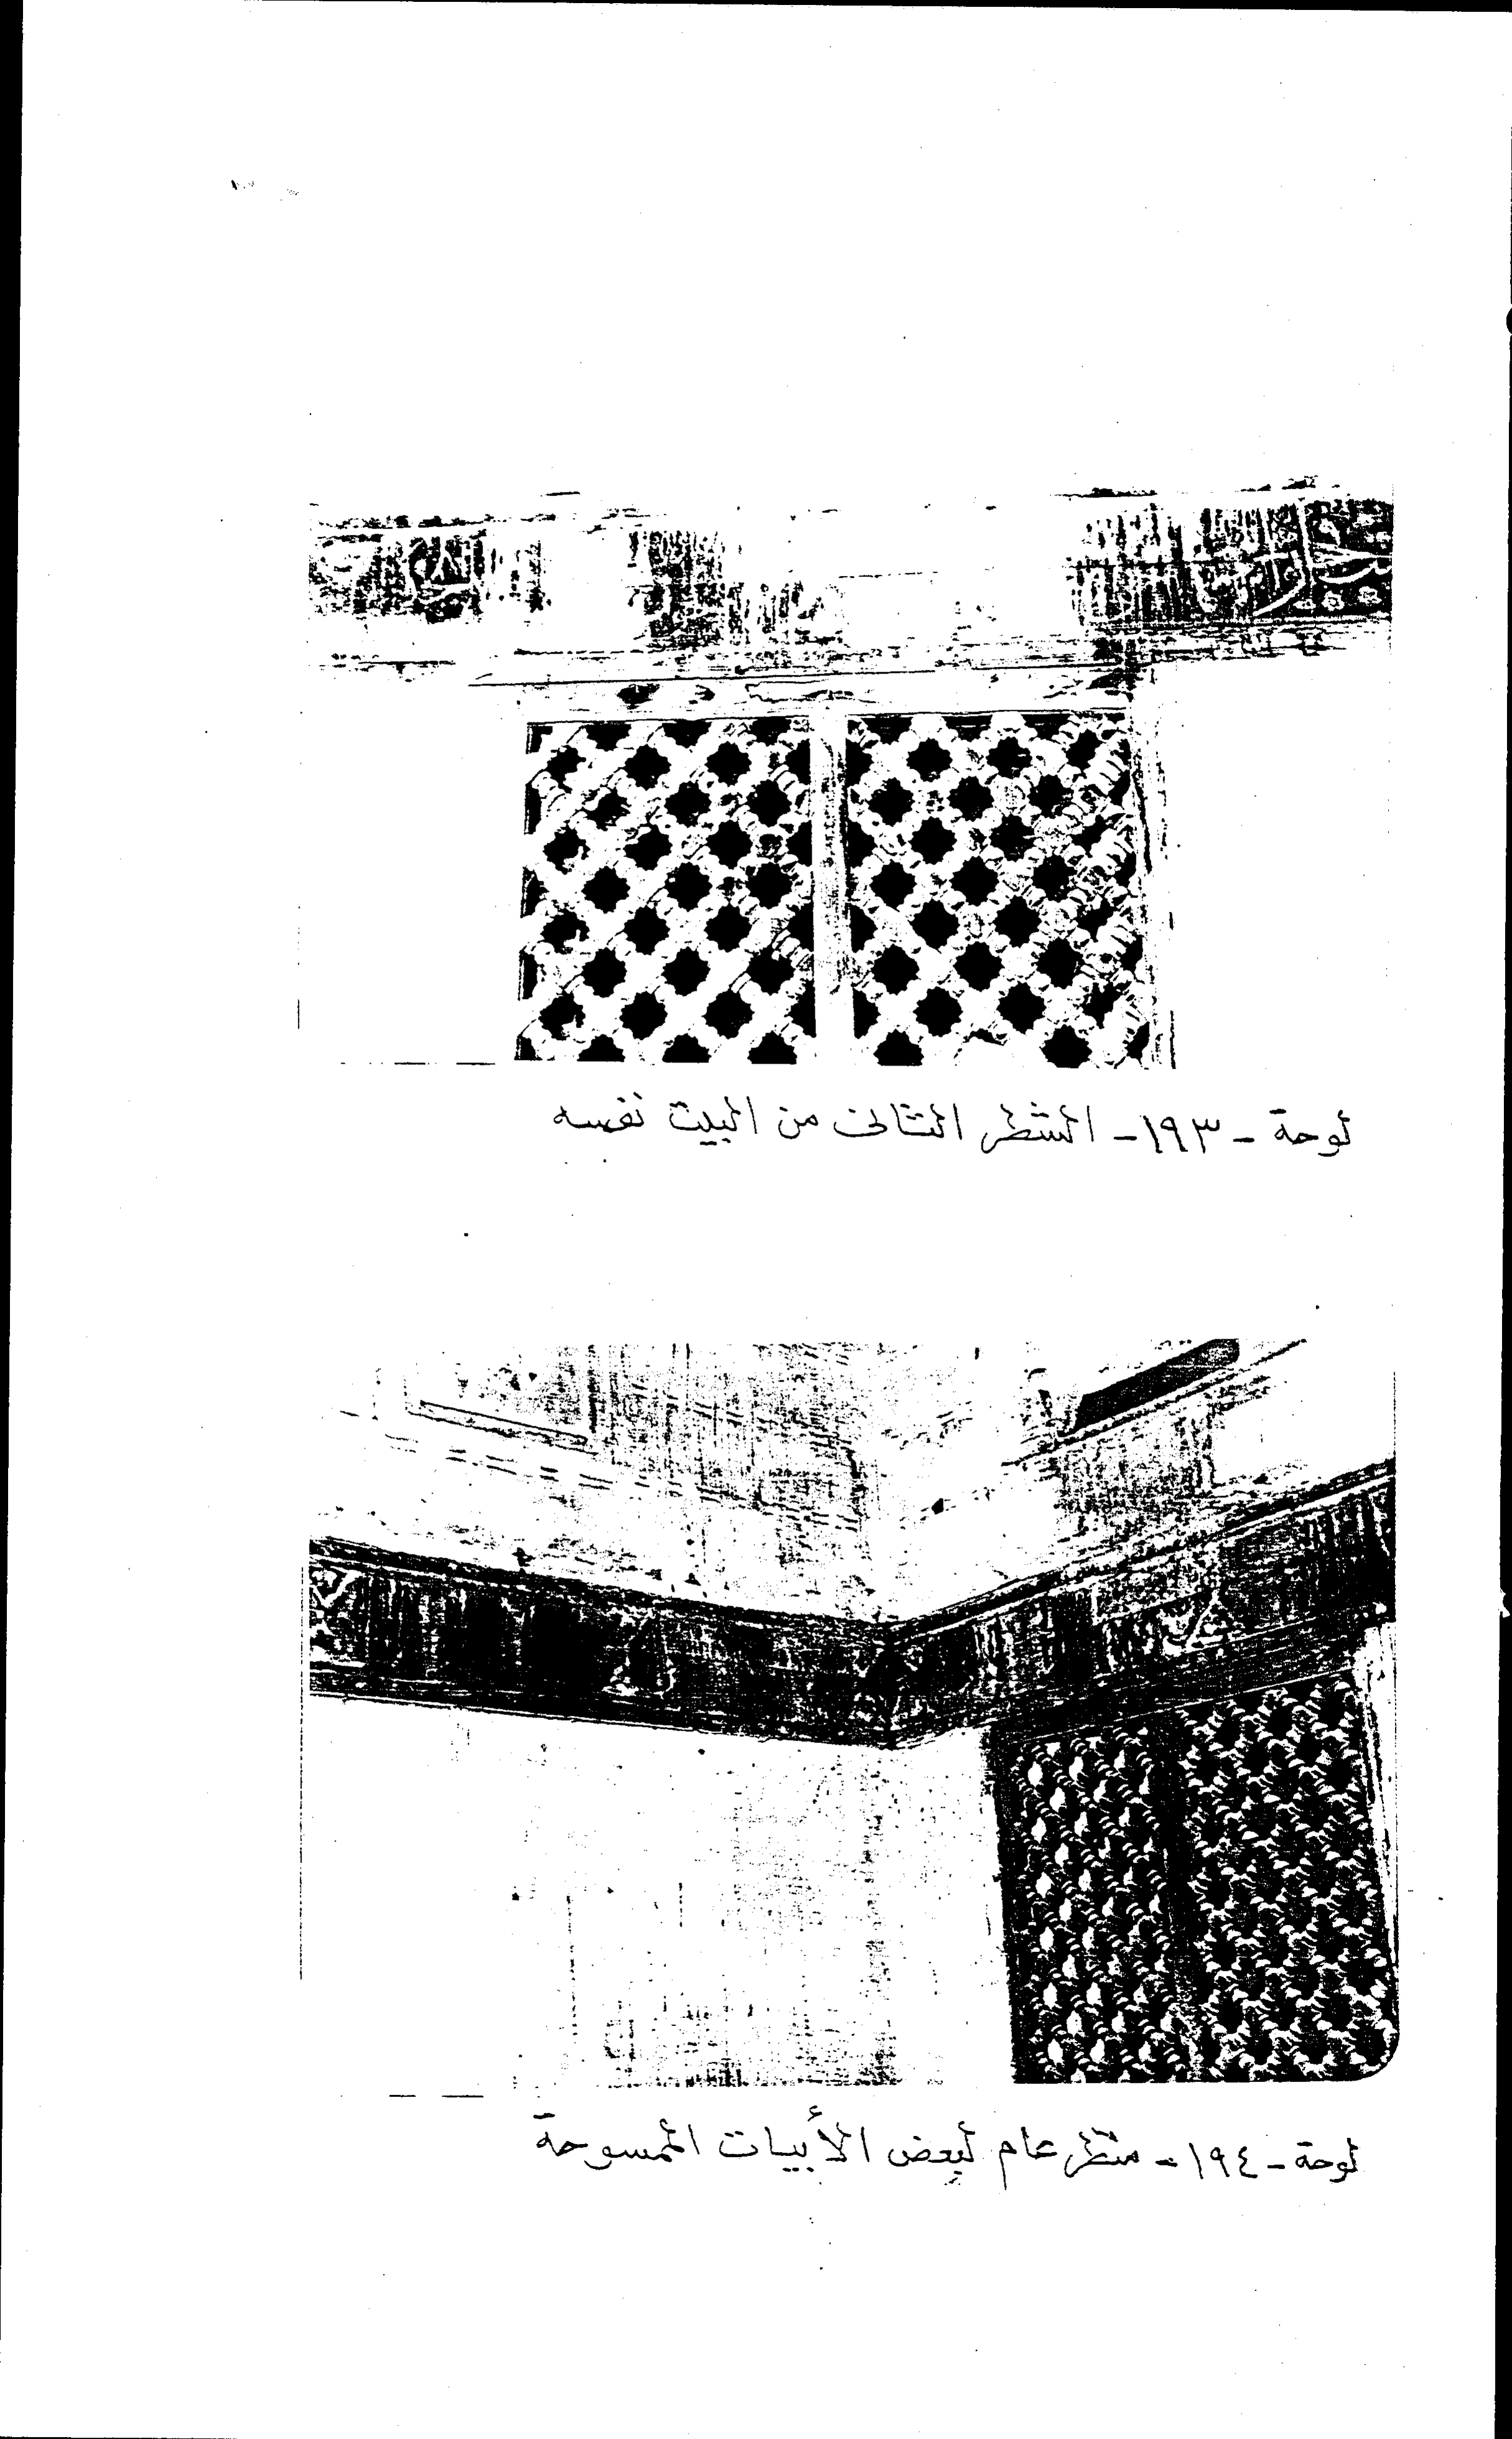 لوحة - ١٩٣ - الشطر الثانى من البيت نفسه
لوحة - ١٩٤ - منظر عام لبعض الأبيات الممسوحة